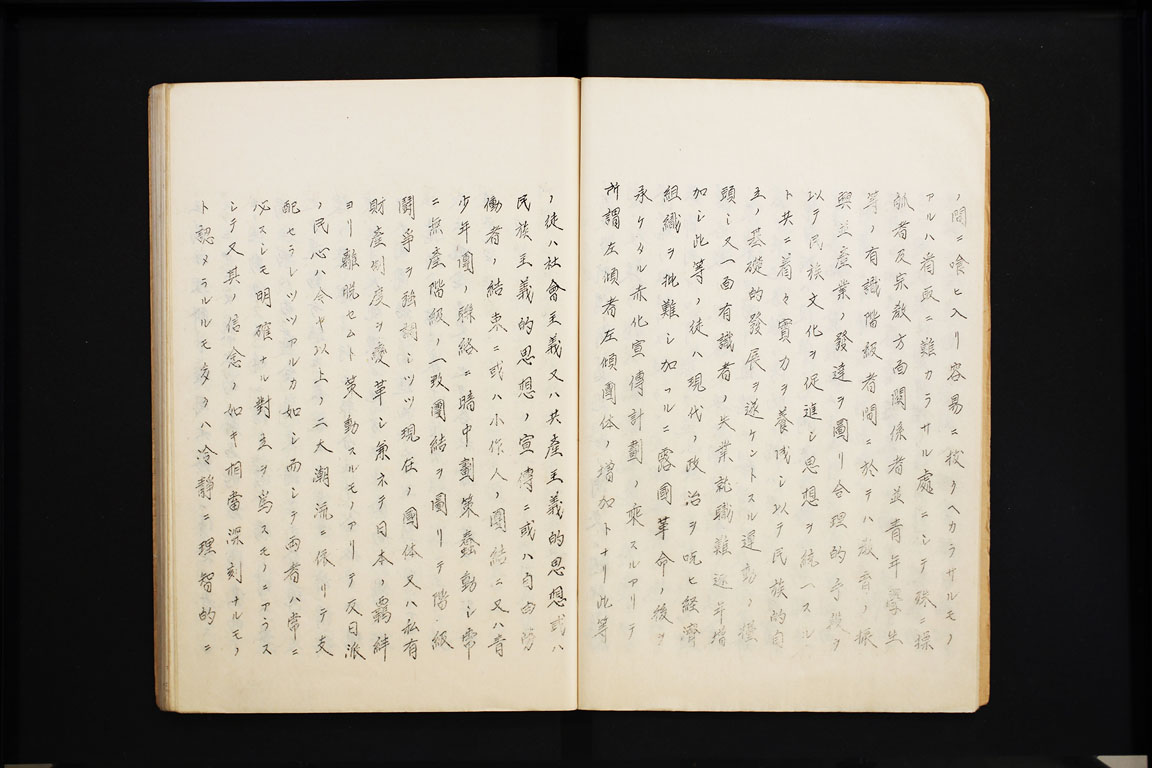 ノ間ニ喰ヒ入リ容易ニ抜クヘカラサルモノ
アルハ看取ニ難カラサル處ニシテ殊ニ操
觚者及宗教方面関係者並青年學生
等ノ有識階級者間ニ於テハ教育ノ振
興並産業ノ發達ヲ圖リ合理的手段ヲ
以テ民族文化ヲ促進シ思想ヲ統一スル
ト共ニ着々實力ヲ養成シ以テ民族的自
立ノ基礎的發展ヲ遂ケントスル運動ノ擡
頭シ又一面有識者ノ失業就職難逐年增
加シ此等ノ徒ハ現代ノ政治ヲ呪ヒ経濟
組織ヲ批難シ加フルニ露國革命ノ後ヲ
承ケタル赤化宣傳計劃ノ乘スルアリテ
所謂左傾者左傾團体ノ增加トナリ此等
ノ徒ハ社會主義又ハ共産主義的思想或ハ
民族主義的思想ノ宣傳ニ或ハ自由労
働者ノ結束ニ或ハ小作人ノ團結ニ又ハ青
少年團ノ聯絡ニ暗中劃策蠢動シ常
ニ無産階級ノ一致團結ヲ圖リテ階級
鬪爭ヲ強調シツツ現在ノ國体又ハ私有
財産制度ヲ変革シ兼ネテ日本ノ羈絆
ヨリ離脱セムト策動スルモノアリテ反日派
ノ民心ハ今ヤ以上ノ二大潮流ニ依リテ支
配セラレツツアルカ如シ而シテ両者ハ常ニ
必スシモ明確ナル對立ヲ爲スモノニアラス
シテ又其ノ信念ノ如キ相當深刻ナルモノ
ト認メラルルモ多クハ冷静ニ理智的ニ